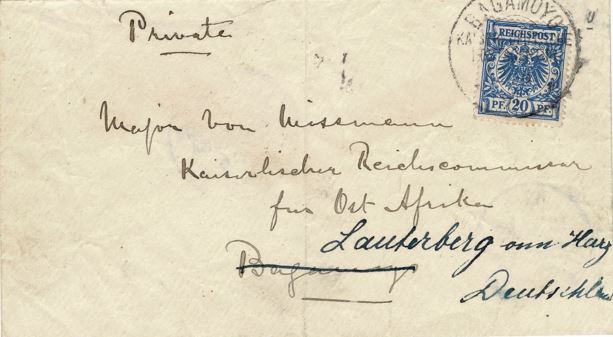 Private
BAGAMOYO
REICHSPOST
PF. 20 PF.
Major von Wissmann
Kaiserlischer Reichscommissar
fur Ost Afrika
Lauterberg am Harz
Bagamoyo
Deutschland